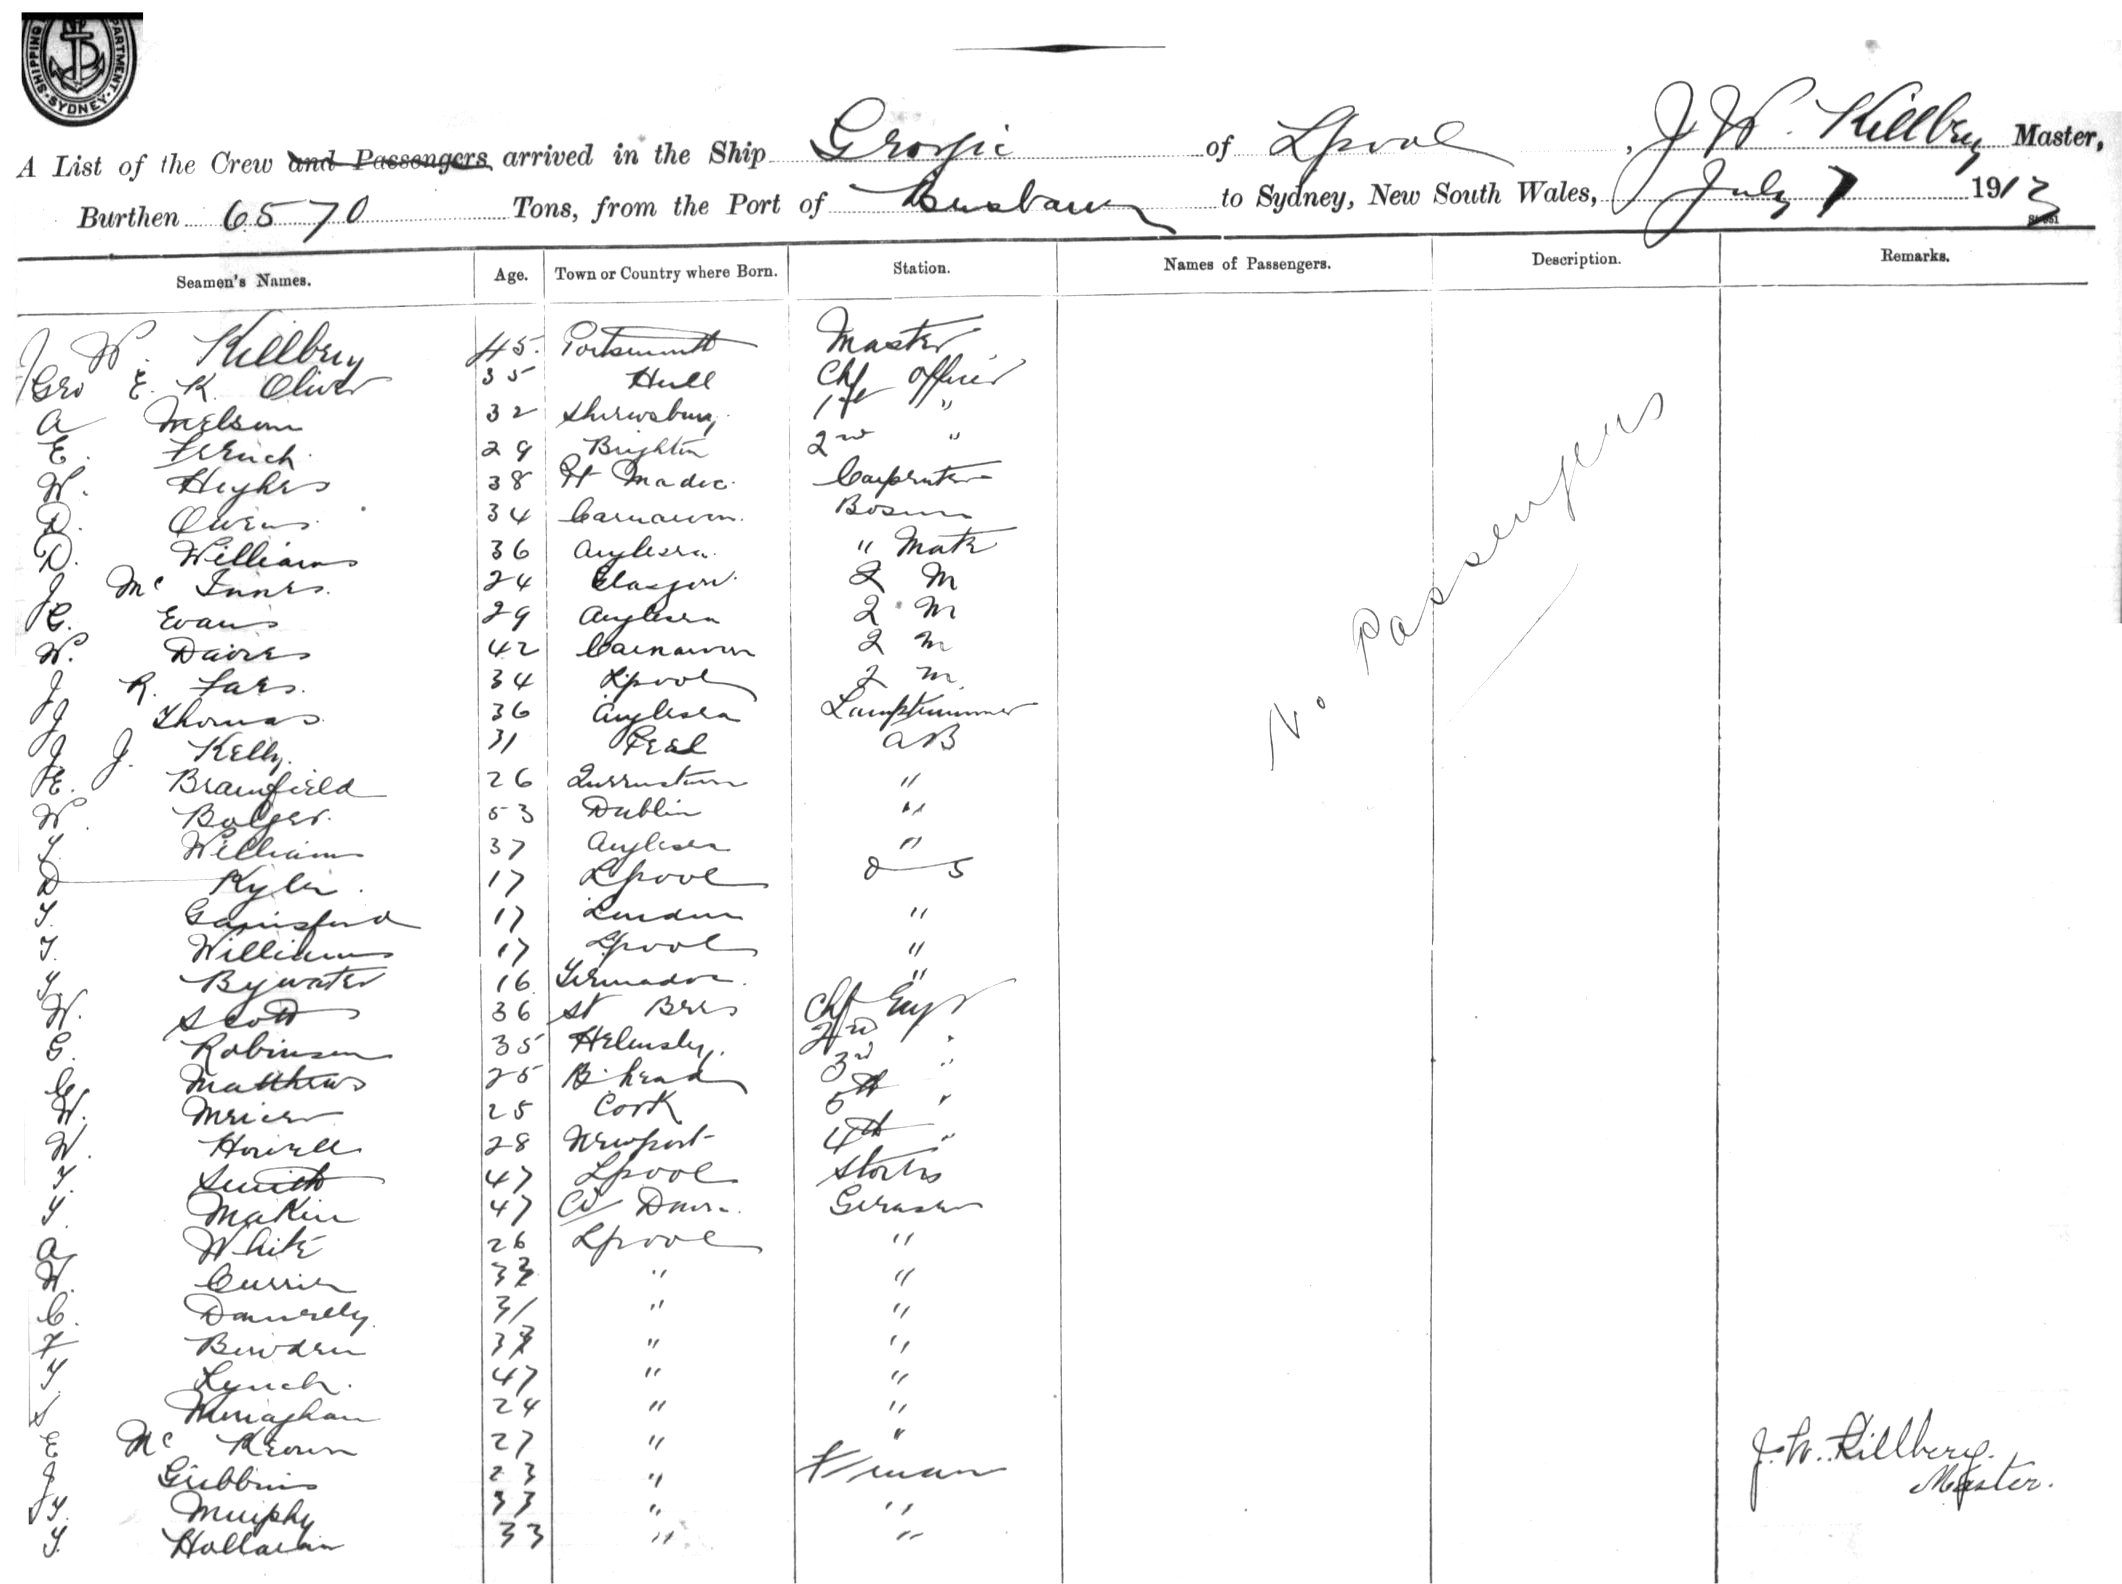 SHIPPING DEPARTMENT SYDNEY
A List of the Crew and Passengers arrived in the Ship Georgic of Lpool, J W. Killbery Master,
Burthen 6570 Tons, from the Port of Brisbane to Sydney, New South Wales, July 7 1913
Seamen's Names. Age. Town or Country where Born. Station. Names of Passengers. Description. Remarks.
J W. Killbery 45. Portsmouth Master
Geo E. K. Oliver 35 Hull Chf Officer
A Melsom 32 Shrewsbury 1st "
E. French 29 Brighton 2nd "
W. Hughes 38 Pt Madoc. Carpenter
D. Owens 34 Carnarvon. Bosun
D. Williams 36 Anglesea. " Mate
J McInnes. 24 Glasgow. Q M
E. Evans 29 Anglesea Q M
W. Davies 42 Carnarvon Q M
J R. 34 Lpool Q M.
J Thomas 36 Anglesea Lamptrimmer
J J. Kelly. 31 Peel AB
E. Bramfield 26 Queenstown "
W. Bolger. 53 Dublin "
T. Williams 37 Anglesea "
D Kyle . 17 Lpool O S
T. Gainsford 17 London "
T. Williams 17 Lpool "
T Bywater 16 "
W. Scott 36 St Bees Chf Engr
G. Robinson 35 Helmsley. 2nd "
Matthews 25 B.head 3rd "
W. Mercer 25 Cork 5th "
W. Howell 28 Newport 4th "
T. Smith 47 Lpool Stores
T. Makin 47 Co Down. Greaser
A White 26 Lpool "
W. Currie 33 " "
C. Donnelly. 31 " "
F Bowden 33 " "
T Lynch. 47 " "
S Minaghan 24 " "
E McKeown 27 " "
J Gibbins 23 " F/man
T. Murphy 33 " "
T. Halloran 33 " "
No Passengers
J. W. Killbery.
Master.